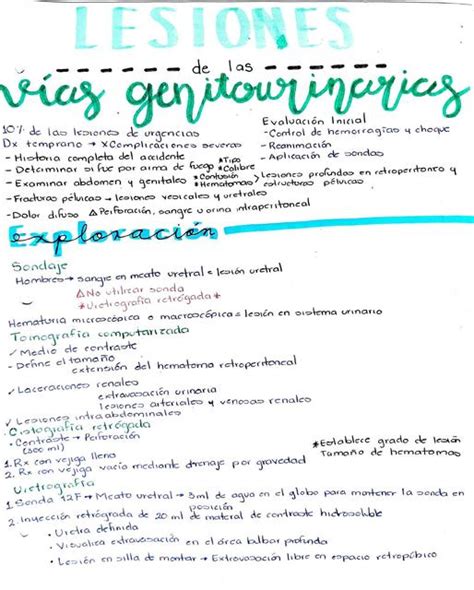 LESIONES
de las
vías genitourinarias
10% de las lesiones de urgencias
Dx temprano → xComplicaciones severas
- Historia completa del accidente
- Determinar si fue por arma de fuego *Tipo *Calibre
- Examinar abdomen y genitales *Contusión *Hematomas > lesiones profundas en retroperitoneo y estructuras pélvicas
- Fracturas pélvicas → lesiones vesicales y uretrales
- Dolor difuso △ Perforación, sangre u orina intraperitoneal
Evaluación Inicial
- Control de hemorragias y choque
- Reanimación
- Aplicación de sondas
Exploración
Sondaje
Hombres → sangre en meato uretral = lesión uretral
△ No utilizar sonda
*Uretrografía retrógada*
Hematuria microscópica o macroscópica = lesión en sistema urinario
Tomografía computarizada
✓ Medio de contraste
- Define el tamaño
extensión del hematoma retroperitoneal
✓ Laceraciones renales
extravasación urinaria
lesiones arteriales y venosas renales
✓ Lesiones intraabdominales
Cistografía retrógada
- Contraste → Perforación
(300 ml)
1. Rx con vejiga llena
2. Rx con vejiga vacía mediante drenaje por gravedad
*Establece grado de lesión
Tamaño de hematomas
Uretrografía
1. Sonda 12F → Meato uretral → 3ml de agua en el globo para mantener la sonda en posición
2. Inyección retrógrada de 20 ml de material de contraste hidrosoluble
• Uretra definida
• Visualiza extravasación en el área bulbar profunda
• Lesión en silla de montar → Extravasación libre en espacio retropúbico